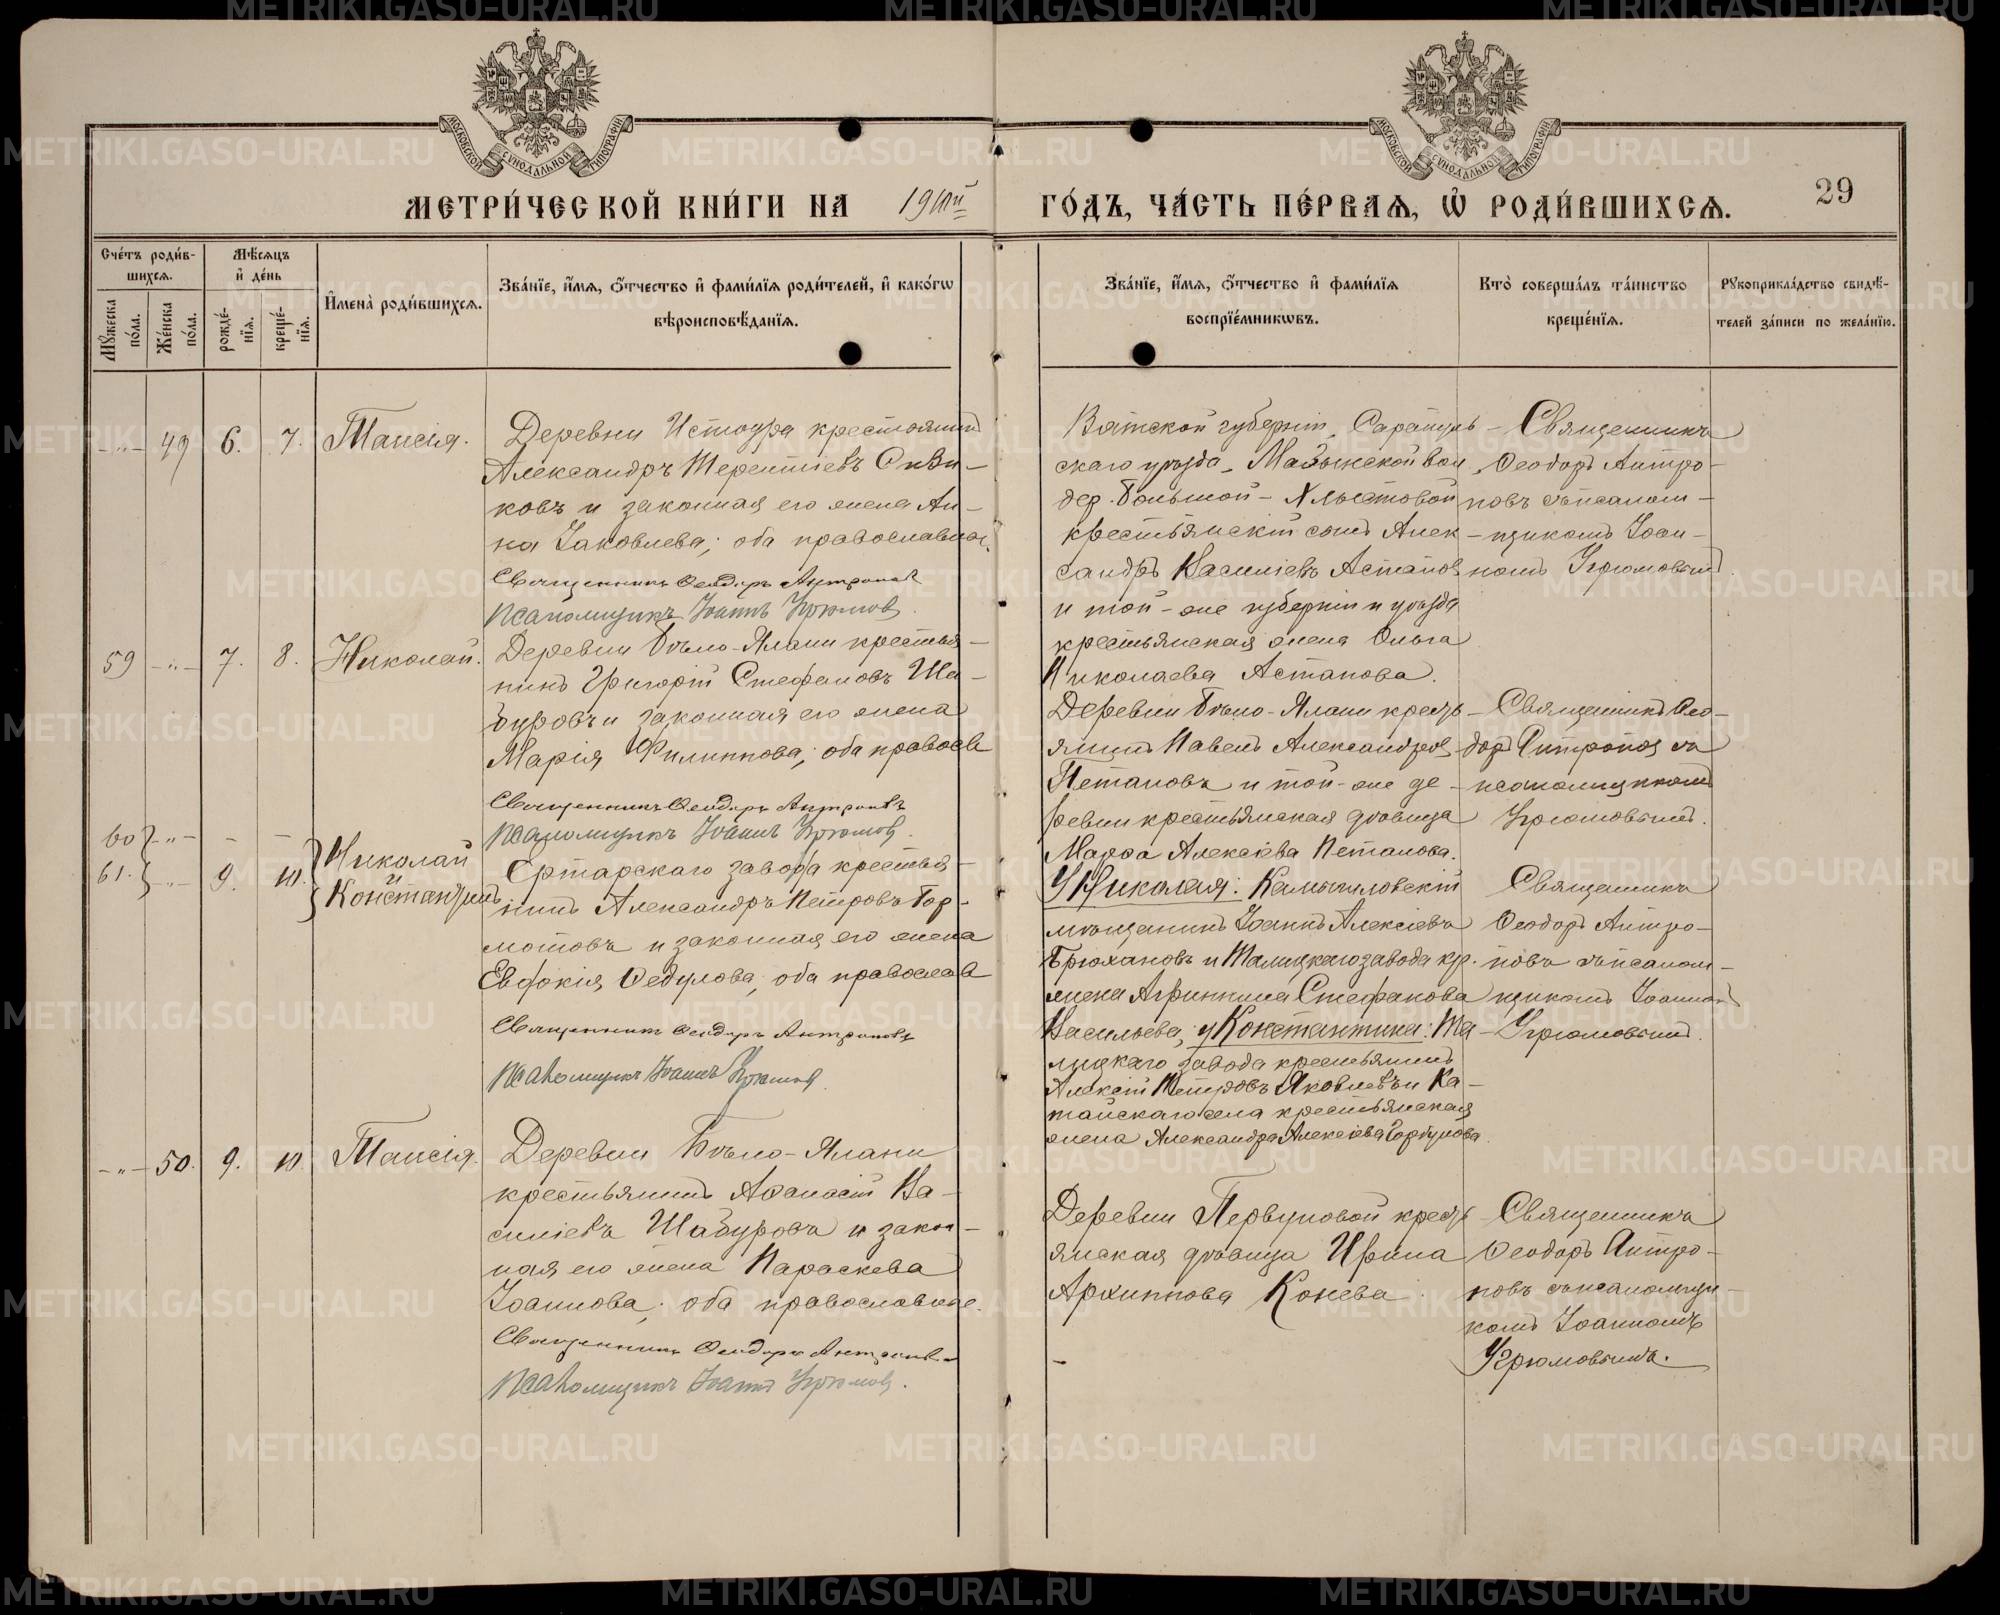 МЕТРИ́ЧЕСКОЙ КНИ́ГИ НА
ГО́ДЪ, ЧА́СТЬ ПЕ́РВАЯ, Ѽ РОДИ́ВШИХСЯ.
29
МОСКОВСКОЙ СѴНОДАЛЬНОЙ ТИПОГРАФІИ
МОСКОВСКОЙ СѴНОДАЛЬНОЙ ТИПОГРАФІИ
Сче́тъ роди́в-
шихся.
Мꙋ́жеска по́ла.
Же́нска по́ла.
Мѣ́сяцъ
и҆ де́нь
рожде́-нїѧ.
креще́-нїѧ.
И҆мена̀ роди́вшихся.
Зва́нїе, и҆́мя, ѻ҆́тчество и҆ фами́лїя роди́телей, и҆ како́гѡ
вѣроисповѣ́данїя.
Зва́нїе, и҆́мя, ѻ҆́тчество и҆ фами́лїя
воспрїе́мникѡвъ.
Кто̀ соверша́лъ та́инство
креще́нїя.
Рꙋкоприкла́дство свидѣ́-
телей за́писи по жела́нїю.
-"- 49 6. 7. Таисія.
Деревни Истоура крестьянинъ
Александръ Терентіевъ
ковъ и законная его жена Ан-
на Іаковлева; оба православные.
Священникъ Ѳеодоръ Антроповъ
Псаломщикъ Іоаннъ Угрюмовъ.
Вятской губерніи, Сарапуль-
скаго уѣзда, вол.
дер. Большой-
крестьянскій сынъ Алек-
сандръ Василіевъ Астаповъ
и той-же губерніи и уѣзда
крестьянская жена Ольга
Николаева Астапова.
Священникъ
Ѳеодоръ Антро-
повъ съ псалом-
щикомъ Іоан-
номъ Угрюмовымъ.
59 -"- 7. 8. Николай.
Деревни Бѣло-Ялани крестья-
нинъ Григорій Стефановъ Ша-
буровъ и законная его жена
Марія Филиппова; оба правосл
Священникъ Ѳеодоръ Антроповъ
Псаломщикъ Іоаннъ Угрюмовъ.
Деревни Бѣло-Ялани кресть-
янинъ Павелъ Александров
Петановъ и той-же де-
ревни крестьянская дѣвица
Марѳа Алексіева Петанова.
Священникъ Ѳео-
доръ Антроповъ съ
псаломщикомъ
Угрюмовымъ.
60 -"- - -
61. -"- 9. 10. Николай
и
Константинъ
Ертарскаго завода крестья-
нинъ Александръ Петровъ Бар-
мотовъ и законная его жена
Евдокія Ѳедулова, оба православ
Священникъ Ѳеодоръ Антроповъ
Псаломщикъ Іоаннъ Угрюмовъ.
У Николая: Камышловскій
мѣщанинъ Іоаннъ Алексіевъ
Брюхановъ и Талицкаго завода кр.
жена Агриппина Стефанова
Васильева; у Константина: Та-
лицкаго завода крестьянинъ
Алексій Петровъ Яковлевъ и Ка-
тайскаго села крестьянская
жена Александра Алексіева Горбунова.
Священникъ
Ѳеодоръ Антро-
повъ съ псалом-
щикомъ Іоанномъ
Угрюмовымъ.
-"- 50. 9. 10. Таисія.
Деревни Бѣло-Ялани
крестьянинъ Аѳанасій Ва-
силіевъ Шабуровъ и закон-
ная его жена Параскева
Іоаннова; оба православные.
Священникъ Ѳеодоръ Антроповъ
Псаломщикъ Іоаннъ Угрюмовъ.
Деревни Первуновой кресть-
янская дѣвица Ирина
Архиппова Конева.
Священникъ
Ѳеодоръ Антро-
повъ съ псаломщи-
комъ Іоанномъ
Угрюмовымъ.
METRIKI.GASO-URAL.RU